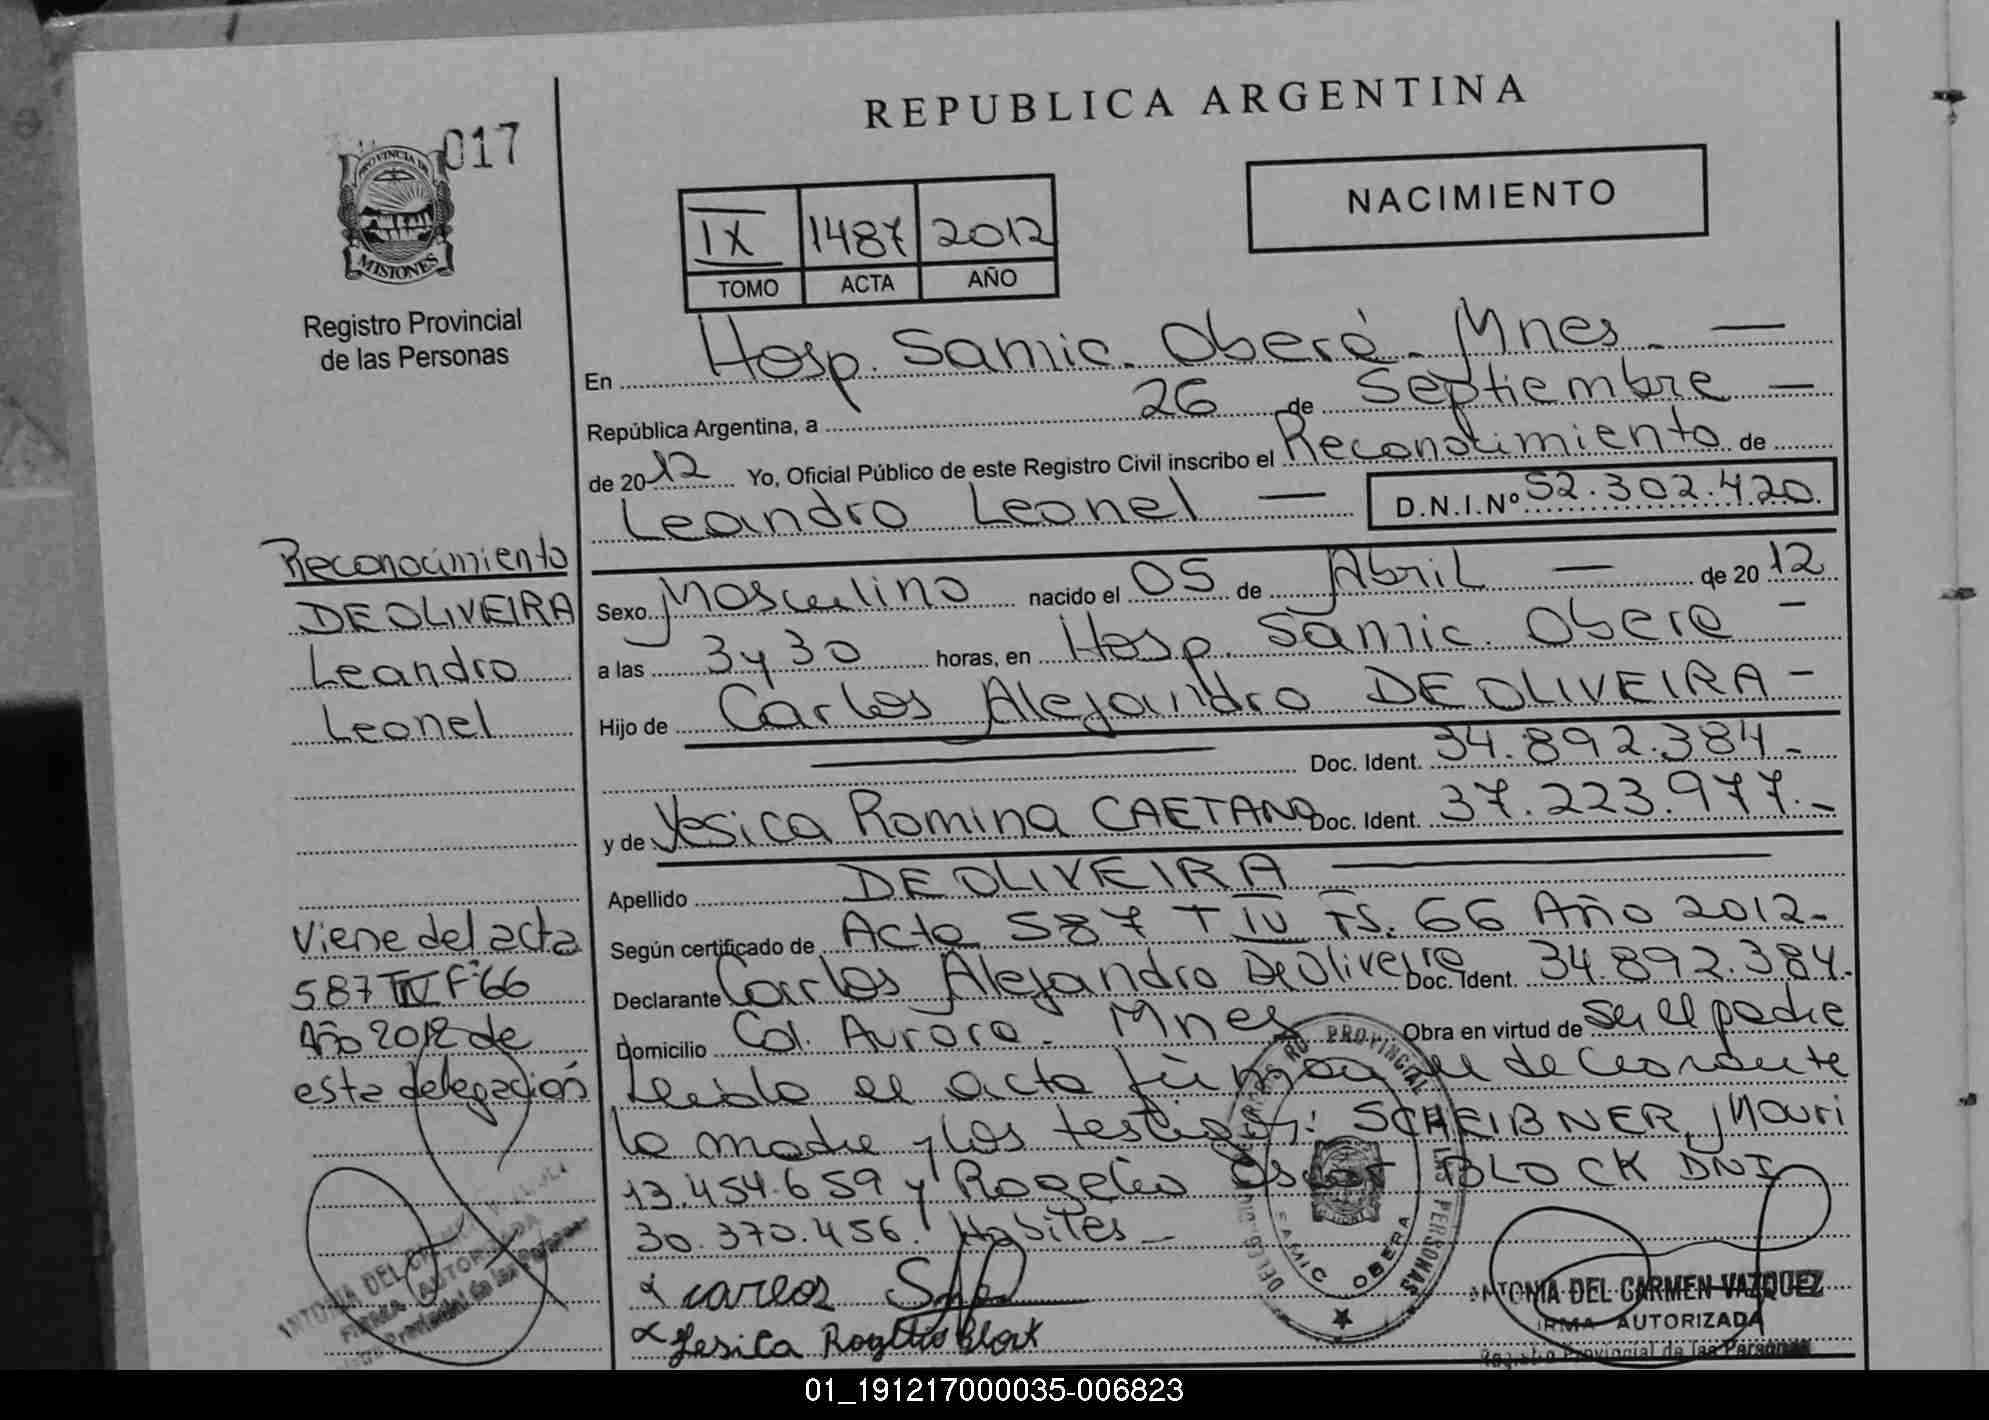 REPUBLICA ARGENTINA
017
PROVINCIA DE
MISIONES
Registro Provincial
de las Personas
NACIMIENTO
IX 1487 2012
TOMO ACTA AÑO
En Hosp. Samic. Oberá. Mnes.
República Argentina, a 26 de Septiembre
de 2012 Yo, Oficial Público de este Registro Civil inscribo el Reconocimiento de
Leandro Leonel D.N.I.Nº 52.302.420.
Sexo Masculino nacido el 05 de Abril de 2012
a las 3 y 30 horas, en Hosp. Samic. Obera
Hijo de Carlos Alejandro DE OLIVEIRA
Doc. Ident. 34.892.384.-
y de Yesica Romina CAETANO Doc. Ident. 37.223.977.-
Apellido DE OLIVEIRA
Según certificado de Acta 587 T IV Fs. 66 Año 2012-
Declarante Carlos Alejandro De Oliveira Doc. Ident. 34.892.384.
Domicilio Col. Aurora. Mnes Obra en virtud de ser el padre
Leida el acta
la madre y los testigos: SCHEIBNER, Mauri
13.454.659 y Rogelio Oscar BLOCK DNI
30.370.456. Habiles
carlos
Yesica Rogelio Block
Reconocimiento
DE OLIVEIRA
Leandro
Leonel
Viene del acta
587 T IV Fº 66
Año 2012 de
esta delegación
PROVINCIAL
LAS PERSONAS
SAMIC OBERA
ANTONIA DEL CARMEN VAZQUEZ
FIRMA AUTORIZADA
Registro Provincial de las Personas
ANTONIA DEL
FIRMA AUTORIZADA
Provincial de las Personas
01_191217000035-006823